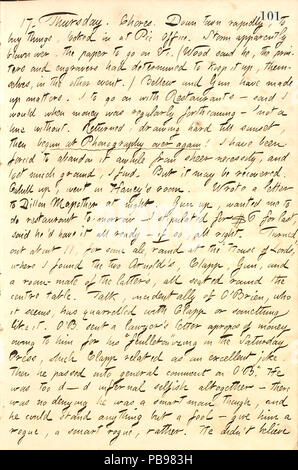 101
17. Thursday. Chores. Down town rapidly to
my things, looked in at Pic office. Storm apparently
blown over, the paper to go on &c. (Wood said he, the prin-
ters and engravers had determined to keep it up, them-
selves, in the other event.) Bellew and Gun have made
up matters. I to go on with Restaurants — said I
would when money was regularly forthcoming — not a
line without. Returned, drawing hard till sunset
then began at Phonography over again! I have been
forced to abandon it awhile from sheer necessity, and
lost much ground, I find. But it may be recovered.
up, went in Haney's room. Wrote a letter
to Dillon Mapother at night. Gun up, wanted me to
do restaurant to-morrow — I stipulated for $6 for last
said he'd have it all ready — if so, all right. Turned
out about 11, for some ale, round at the House of Lords,
where I found the two Arnold's, Clapp, Gun, and
a room-mate of the latter's, all seated round the
centre table. Talk, incidentally of O'Brien, who
it seems, has quarrelled with Clapp or something
like it. O'B. sent a lawyer's letter apropos of money
owing to him for his feuilletonizing in the Saturday
Press, which Clapp related as an excellent joke
then he passed into general comment on O'B. He
was too d—d infernal selfish altogether — there
was no denying he was a smart man though, and
he could stand anything but a fool — give him a
rogue, a smart rogue, rather. He didn't believe
alamy
PB983H